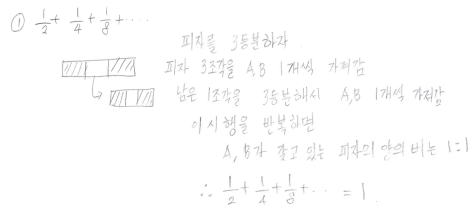 ① 1/2 + 1/4 + 1/8 + ⋯
피자를 3등분하자
피자 3조각을 A,B 1개씩 가져감
남은 1조각을 3등분해서 A,B 1개씩 가져감
이 시행을 반복하면
A, B가 갖고 있는 피자의 양의 비는 1:1
∴ 1/2 + 1/4 + 1/8 + ⋯ = 1